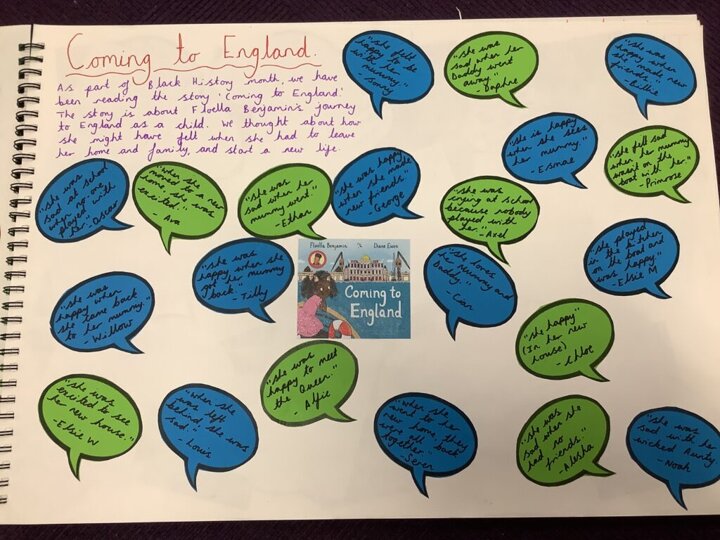 Coming to England.
As part of Black History month, we have
been reading the story 'Coming to England.'
The story is about Floella Benjamin's journey
to England as a child. We thought about how
she might have felt when she had to leave
her home and family, and start a new life.
"she felt
happy to be
with her
mummy."
- Sonny
"she was
sad when her
Daddy went
away."
- Daphne
"she was
happy when
she made new
friends."
- Lillie
"she is happy
when she sees
her mummy."
- Esmae
"she felt sad
when her mummy
wasn't on the
boat with her."
- Primrose
"she was
sad at school
when no-one
played with
her." - Oscar
"when she
moved to a new
home, she was
excited."
- Ava
"she was
sad when her
mummy went."
- Ethan
"she was happy
when she made
new friends."
- George
"she was
crying at school
because nobody
played with
her."
- Axel
"she played
in the kitchen
on the boat and
was happy."
- Elsie M
"she was
happy when
she came back
to her mummy."
- Willow
"she was
happy when she
got her mummy
back"
- Tilly
Floella Benjamin
Diane Ewen
Coming to
England
"she loves
her Mummy and
Daddy."
- Cian
"she happy"
(In her new
house)
- Chloe
"she was
excited to see
her new house."
- Elsie W
"when she
was left
behind, she was
sad."
- Louis
"she was
happy to meet
the Queen."
- Alfie
"when she
went to her
new home they
were all back
together"
- Seren
"she was
sad when she
had no
friends."
- Alesha
"she was
sad with her
wicked Aunty"
- Noah